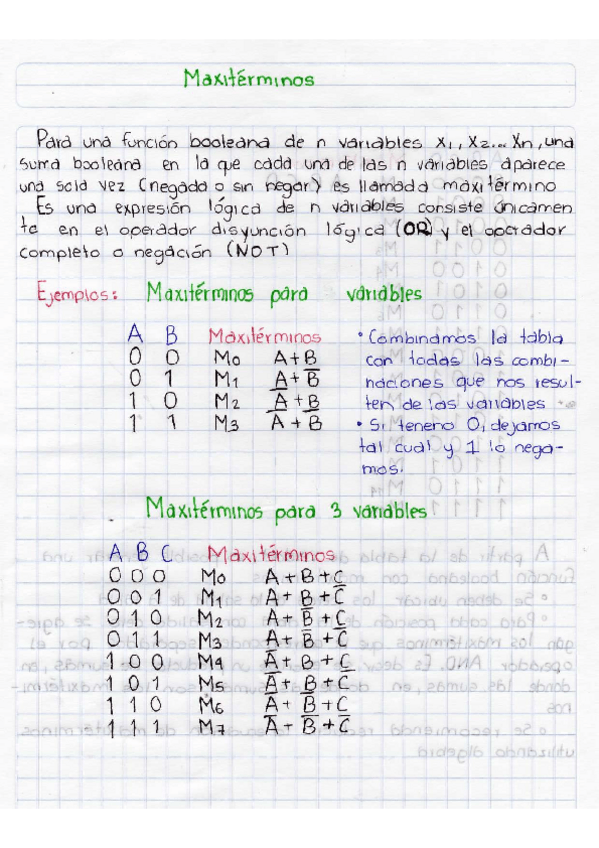 Maxitérminos
Para una función booleana de n variables X1, X2... Xn, una
suma booleana en la que cada una de las n variables aparece
una sola vez (negada o sin negar) es llamada maxitérmino
Es una expresión lógica de n variables consiste únicamen
te en el operador disyunción lógica (OR) y el operador
completo o negación (NOT)
Ejemplos: Maxitérminos para variables
A B Maxitérminos
0 0 M0 A+B
0 1 M1 A+B̅
1 0 M2 A̅+B
1 1 M3 A̅+B̅
• Combinamos la tabla
con todas las combi-
naciones que nos resul-
ten de las variables
• Si teneno 0, dejamos
tal cual y 1 lo nega-
mos.
Maxitérminos para 3 variables
A B C Maxitérminos
0 0 0 M0 A+B+C
0 0 1 M1 A+B+C̅
0 1 0 M2 A+B̅+C
0 1 1 M3 A+B̅+C̅
1 0 0 M4 A̅+B+C
1 0 1 M5 A̅+B+C̅
1 1 0 M6 A̅+B̅+C
1 1 1 M7 A̅+B̅+C̅